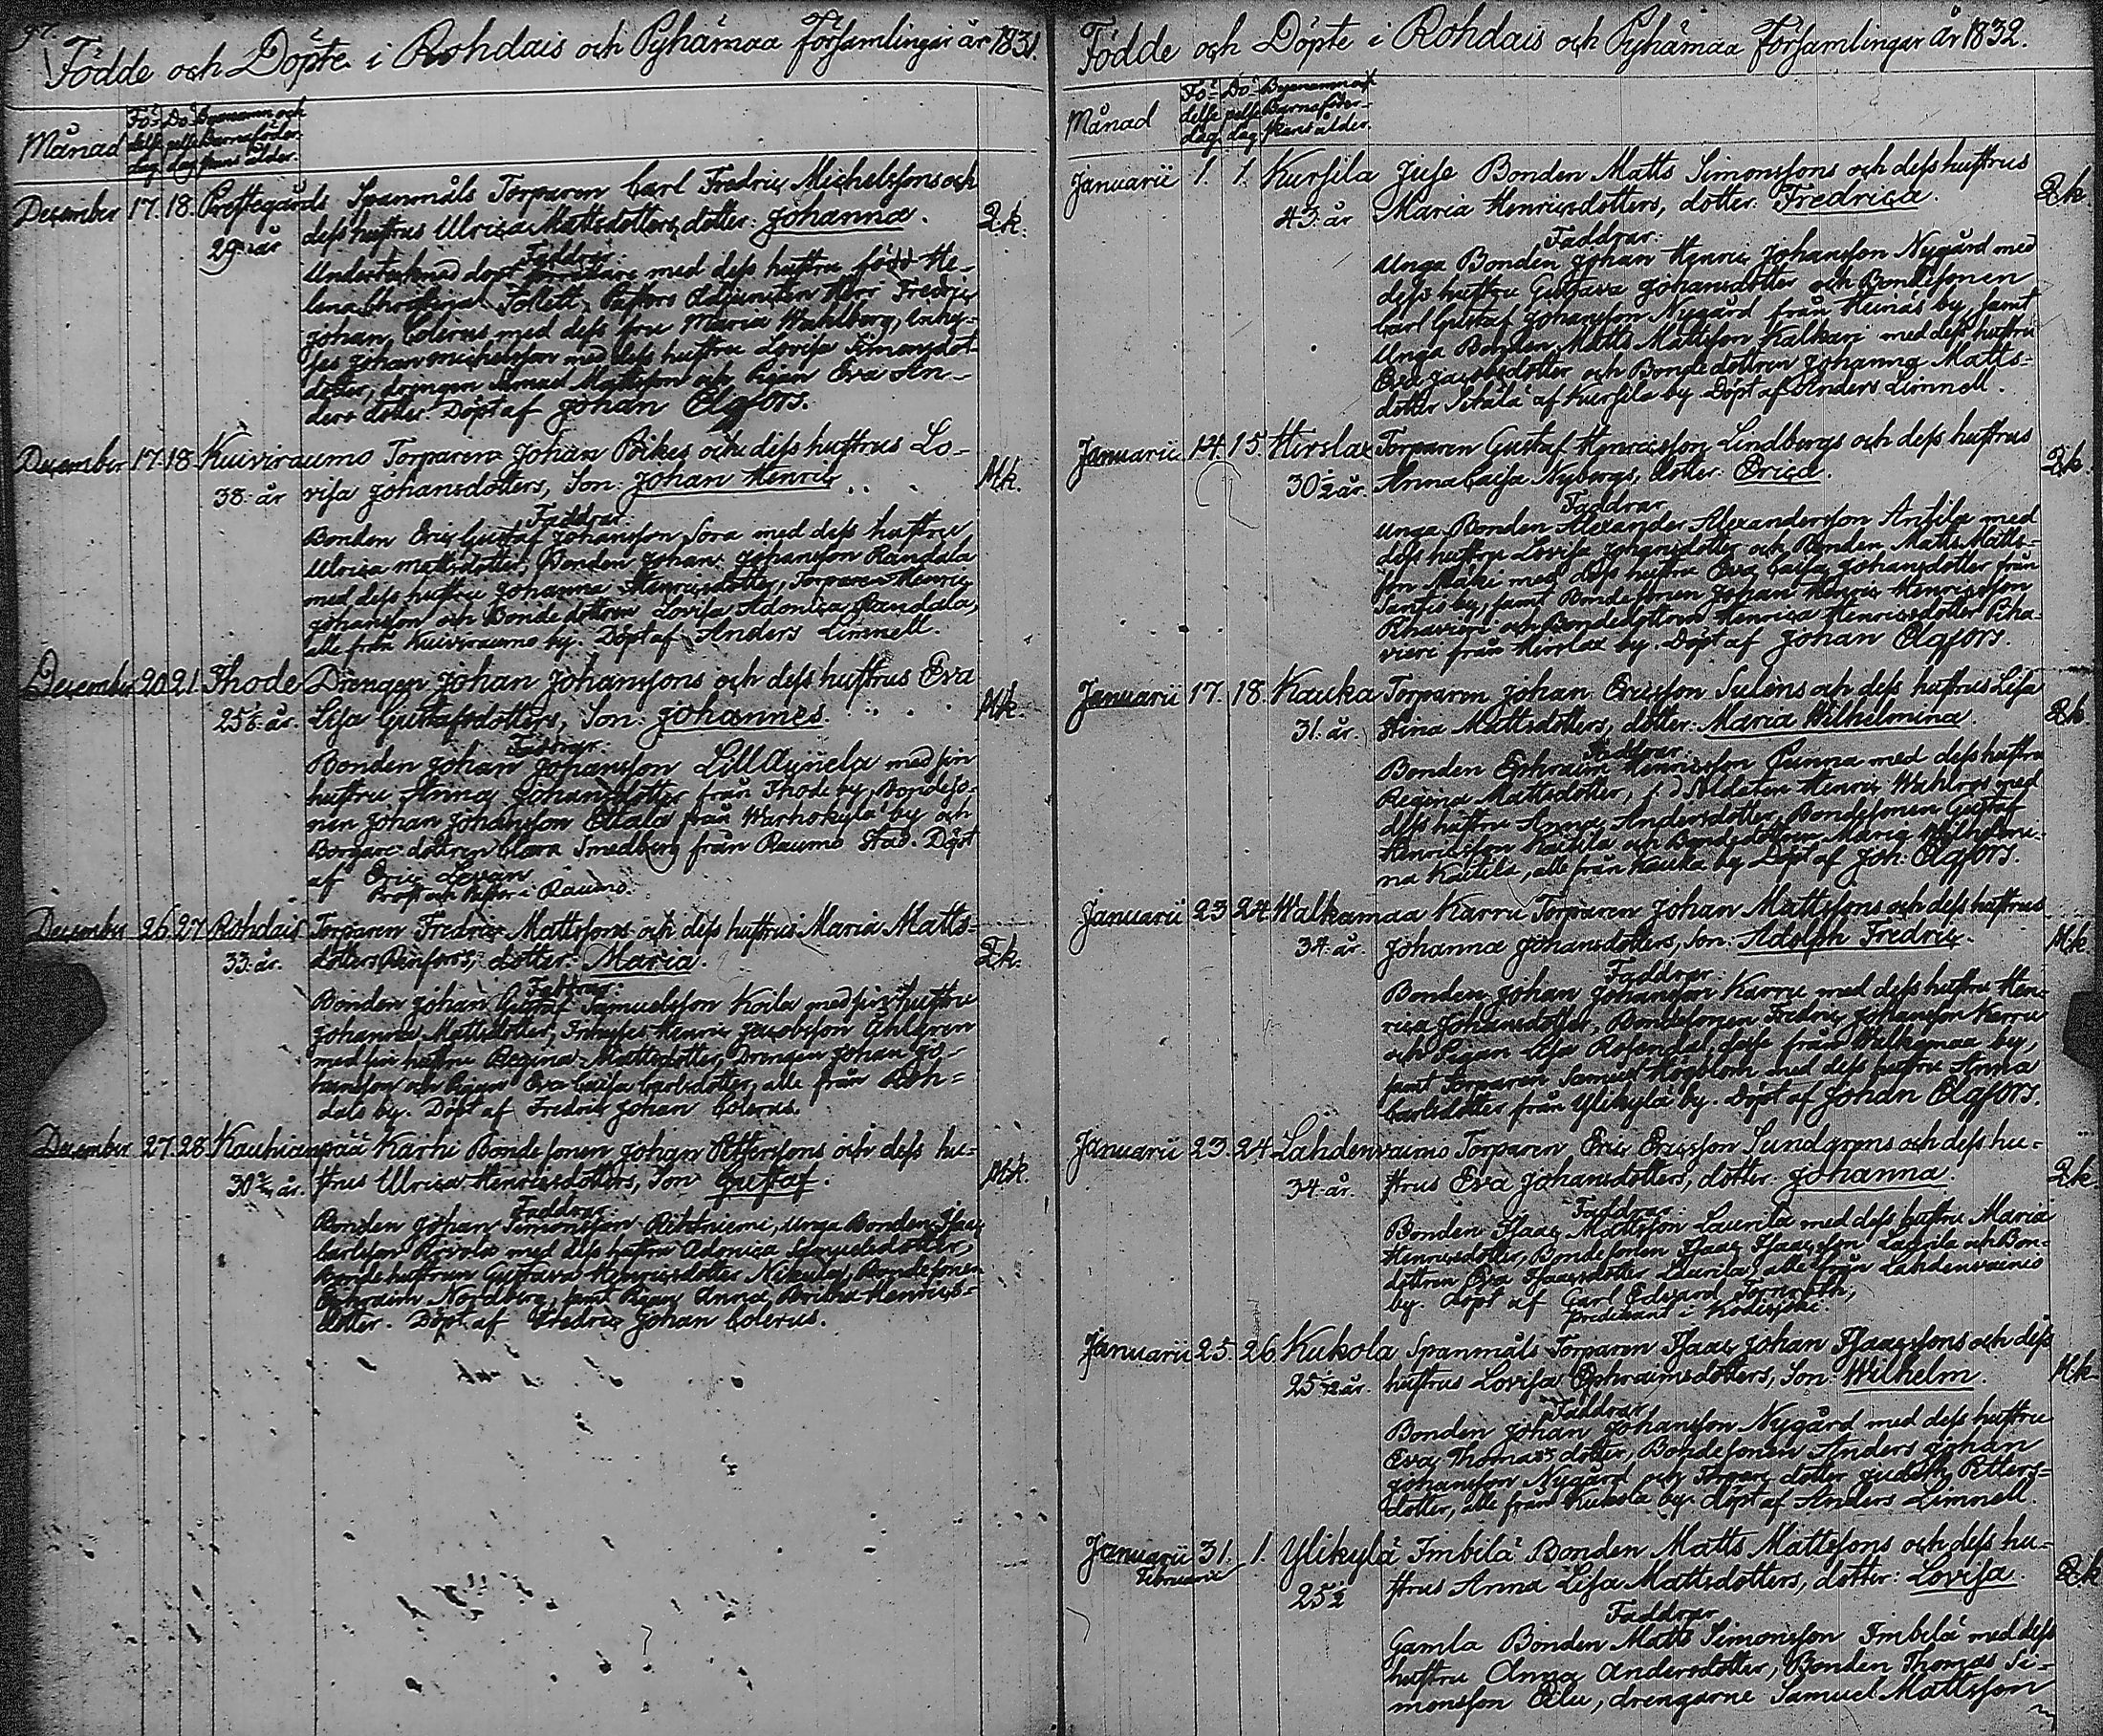 97.
Födde och Döpte i Rohdais och Pyhämaa församlingar år 1831.
Månad Fö- Dö- Byenamn och
delse pelse Barnaföder-
dag dag skans ålder.
December 17. 18. Prestegårds Spanmåls Torparen Carl Fredric Michelssons och
29. år dess hustrus Ulrica Mattsdotters, dotter: Johanna. Qk.
Faddrar:
med dess hustru född He-
lena Pastors Adjuncten Herr Fredric
Johan Colerus med dess fru Maria Wahlberg, Inhy-
ses Johan Michelsson med dess hustru Lovisa Simonsdot-
dotter, drengen Mattsson och Pigan Eva An-
ders dotter. Döpt af Johan Elgfors.
December 17 18 Kuiviraumo Torparen Johan Bikes och dess hustrus Lo-
38. år visa Johansdotters, Son: Johan Henric. Mk.
Faddrar:
Bonden Eric Gustaf Johansson Sora med dess hustru
Ulrica Mattsdotter, Bonden Johan Johansson Randala
med dess hustru Johanna Henricsdotter, Torparen Henric
Johansson och Bondedottren Lovisa Adonica Randala,
alle från Kuiviraumo by. Döpt af Anders Limnell.
December 20 21. Thode Drengen Johan Johanssons och dess hustrus Eva
25 år. Lisa Gustafsdotters, Son: Johannes. Mk.
Faddrar:
Bonden Johan Johansson Lill med sin
hustru Anna Johansdotter från Thode by, Bondeso-
nen Johan Johansson från Warhokylä by och
Borgare dottren Clara Smedberg från Raumo Stad. Döpt
af Eric Levan
Prost och Pastor i Raumo.
December 26 27 Rohdais Torparen Fredric Mattssons och dess hustrus Maria Matts-
33. år. dotters Renfors, dotter: Maria. Qk.
Faddrar:
Bonden Johan Gustaf Samuelsson Koila med sin hustru
Johanna Mattsdotter, Inhyses Henric Jacobsson Åhlgren
med sin hustru Regina Mattsdotter, Drengen Johan Jo-
hansson och Pigan Eva Caisa Carlsdotter, alle från Roh-
dais by. Döpt af Fredric Johan Colerus.
December 27. 28. Kauhianpää Karhi Bondesonen Johan Pettersons och dess hu-
30 år. strus Ulrica Henricsdotters, Son Gustaf. Mk.
Faddrar:
Bonden Johan Simonsson Rihtniemi, Unga Bonden Isaac
Carlsson med dess hustru Adonica Samuelsdotter,
Bonde hustrun Gustava Henricsdotter Nikula, Bondesonen
Ephraim Nordberg, samt Pigan Anna Britha Henrics-
dotter. Döpt af Fredric Johan Colerus.
Födde och Döpte i Rohdais och Pyhämaa Församlingar år 1832.
Månad Fö- Dö- Byenamn och
delse pelse Barnaföder-
dag dag skans ålder.
Januarii 1. 1. Kursila Juse Bonden Matts Simonssons och dess hustrus
43. år Maria Henricsdotters, dotter: Fredrica. Qk.
Faddrar:
Unga Bonden Johan Henric Johansson Nygård med
dess hustru Gustava Johansdotter och Bondesonen
Carl Gustaf Johansson Nygård från Heinäs by, samt
Unga Bonden Matts Mattsson Kalkari med dess hustru
Eva Jacobsdotter och Bondedottren Johanna Matts-
dotter af Kursila by. Döpt af Anders Limnell.
Januarii 14. 15. Hirslax Torparen Gustaf Henricsson Lindbergs och dess hustrus
30 ½ år. Anna Caisa Nybergs, dotter: Erica. Qk.
Faddrar
Unga Bonden Alexander Alexandersson Antila med
dess hustru Lovisa Johansdotter och Bonden Matts Matts-
son Mäki med dess hustru Eva Caisa Johansdotter från
by, samt Bondesonen Johan Henric Henricsson
och Bondedottren Henrica Henricsdotter Piha-
vieri från Hirslax by. Döpt af Johan Elgfors.
Januarii 17. 18. Kauka Torparen Johan Ericsson Sulens och dess hustrus Lisa
31. år. Stina Mattsdotters, dotter: Maria Wilhelmina. Qk.
Faddrar:
Bonden Ephraim Henricsson Punna med dess hustru
Regina Mattsdotter, Soldaten Henric Wahlroos med
dess hustru Anna Andersdotter, Bondesonen Gustaf
Henricsson Kaukila och Bondedottren Maria Wilhelmi-
na Kaukila, alle från Kauka by. Döpt af Joh. Elgfors.
Januarii 23 24. Walkamaa Karru Torparen Johan Mattssons och dess hustrus
34. år. Johanna Johansdotters, Son: Adolph Fredric. Mk.
Faddrar:
Bonden Johan Johansson Karru med dess hustru Hen-
rica Johansdotter, Bondesonen Fredric Johansson Karru
och Pigan Lisa Rosendal, desse från Walkamaa by,
samt Torparen Samuel Högblom med dess hustru Anna
Carlsdotter från Ylikylä by. Döpt af Johan Elgfors.
Januarii 23. 24. Lahdenvainio Torparen Eric Ericsson Sundgrens och dess hu-
34. år. strus Eva Johansdotters, dotter: Johanna. Qk.
Faddrar:
Bonden Isaac Mattsson Laurila med dess hustru Maria
Henricsdotter, Bondesonen Isaac Isaacsson Laurila och Bon-
dottren Eva Isaacsdotter Laurila, alle från Lahdenvainio
by. Döpt af Carl Edvard Törnroth,
Predikant i Kodisjoki.
Januarii 25. 26. Kukola Spanmåls Torparen Isaac Johan Isaacssons och dess
25 ½ år. hustrus Lovisa Ephraimsdotters, Son: Wilhelm. Mk.
Faddrar:
Bonden Johan Johansson Nygård med dess hustru
Eva Thomasdotter, Bondesonen Anders Johan
Johansson Nygård och Torpare dotter Judith Petters-
dotter, alle från Kukola by. Döpt af Anders Limnell.
Januarii 31. 1. Ylikylä Imbilä Bonden Matts Mattssons och dess hu-
Februarii
25 ½ strus Anna Lisa Mattsdotters, dotter: Lovisa. Qk.
Faddrar
Gamla Bonden Matts Simonsson Imbilä med dess
hustru Anna Andersdotter, Bonden Thomas Si-
monsson Eelu, drengarne Samuel Mattsson